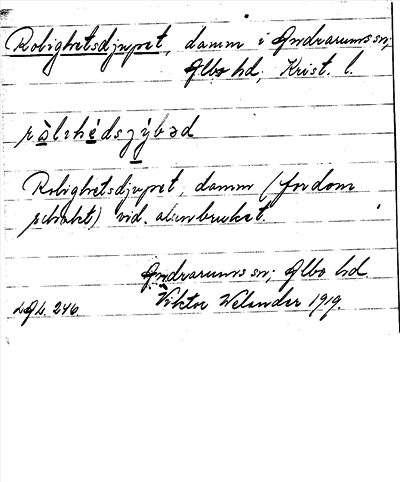 Rolighetsdjupet, damm i Andrarums sn;
Albo hd; Krist. l.
ròlıhédsjýbəd
Rolighetsdjupet, damm (fordom
schakt) vid alunbruket.
Andrarums sn; Albo hd.
Viktor Welander 1919.
246.